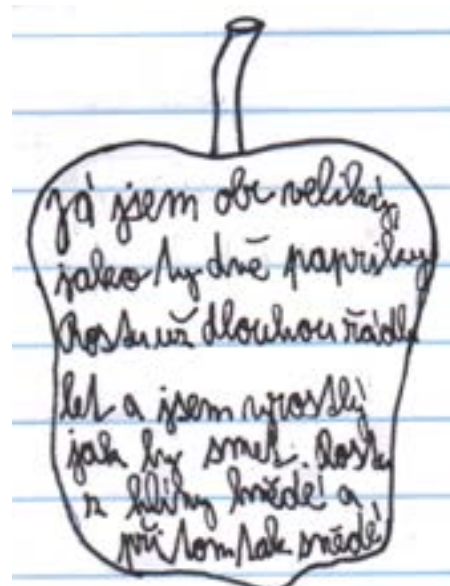 Já jsem obr veliký,
jako ty dvě papriky
Rostu už dlouhou řádku
let a jsem vyrostlý
jak by smet. Rostu
z hlíny hnědé a
při tom tak snědé